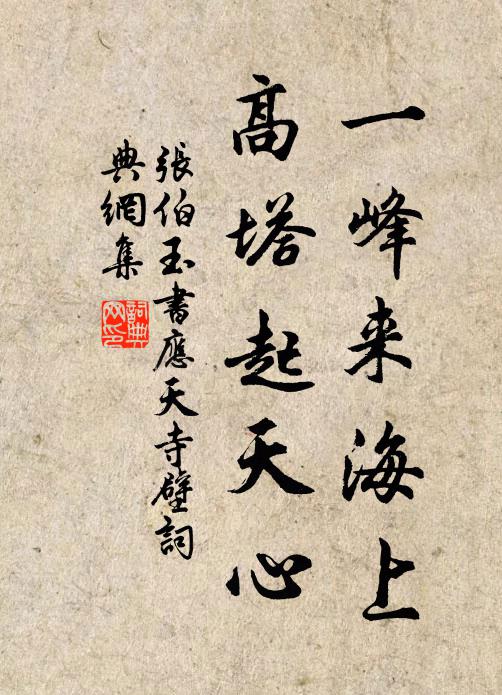 一峰来海上
高塔起天心
張伯玉書應天寺壁詞
典網集
詞典網印